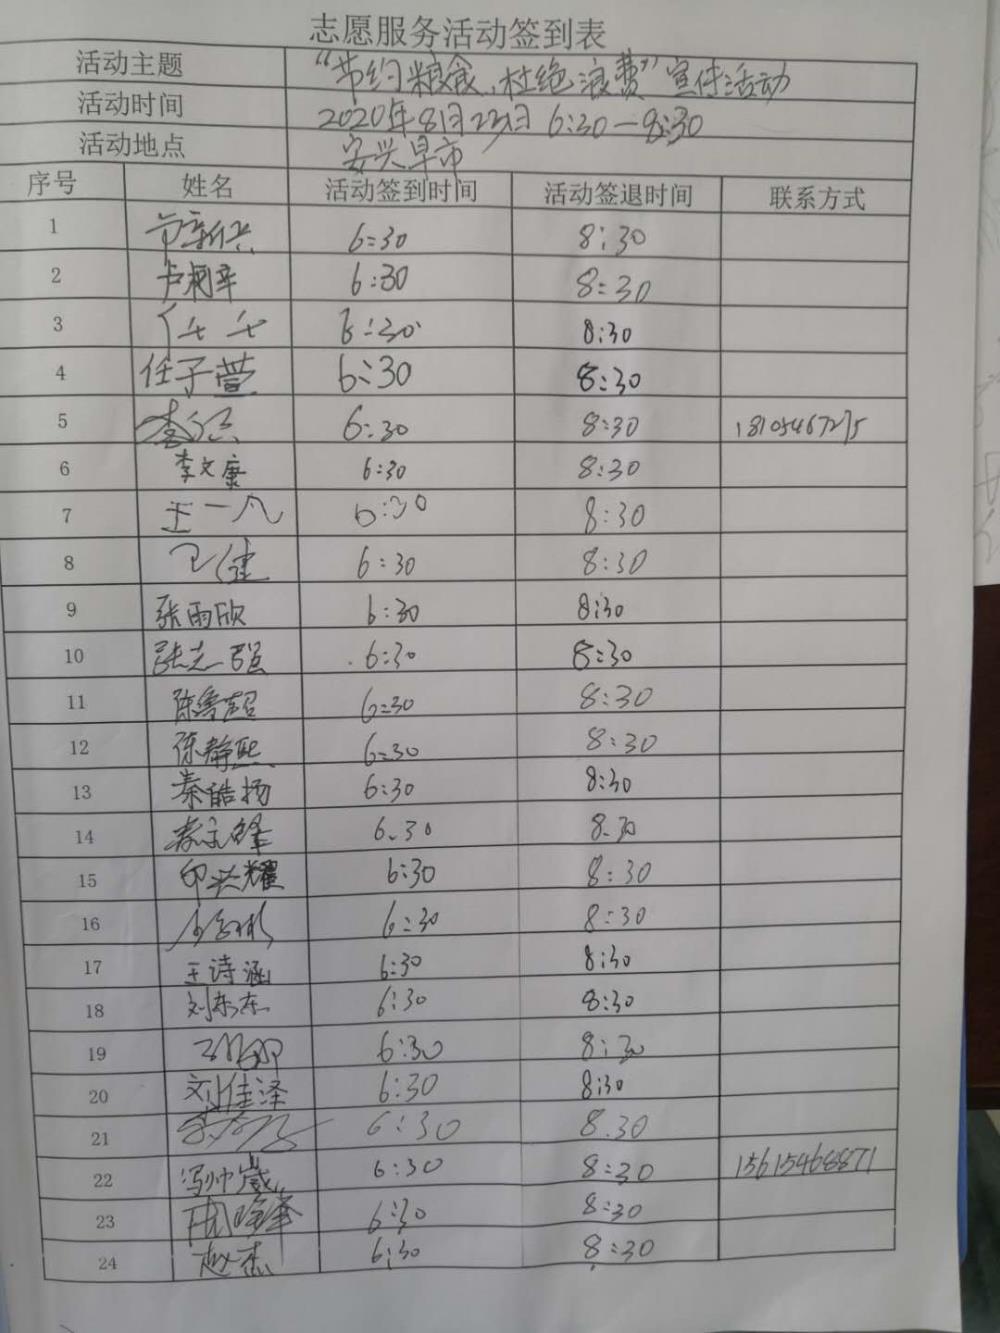 志愿服务活动签到表
活动主题 “节约粮食、杜绝浪费”宣传活动
活动时间 2020年8月23日 6:30—8:30
活动地点 安兴早市
序号 姓名 活动签到时间 活动签退时间 联系方式
1 6:30 8:30
2 6:30 8:30
3 6:30 8:30
4 任子萱 6:30 8:30
5 6:30 8:30
6 李文康 6:30 8:30
7 王一凡 6:30 8:30
8 6:30 8:30
9 张雨欣 6:30 8:30
10 张志强 6:30 8:30
11 陈鲁超 6:30 8:30
12 陈静熙 6:30 8:30
13 秦皓扬 6:30 8:30
14 6.30 8.30
15 印兴耀 6:30 8:30
16 6:30 8:30
17 王诗涵 6:30 8:30
18 刘东东 6:30 8:30
19 6:30 8:30
20 刘佳泽 6:30 8:30
21 6:30 8.30
22 冯帅崴 6:30 8:30 15615468871
23 6:30 8:30
24 赵杰 6:30 8:30